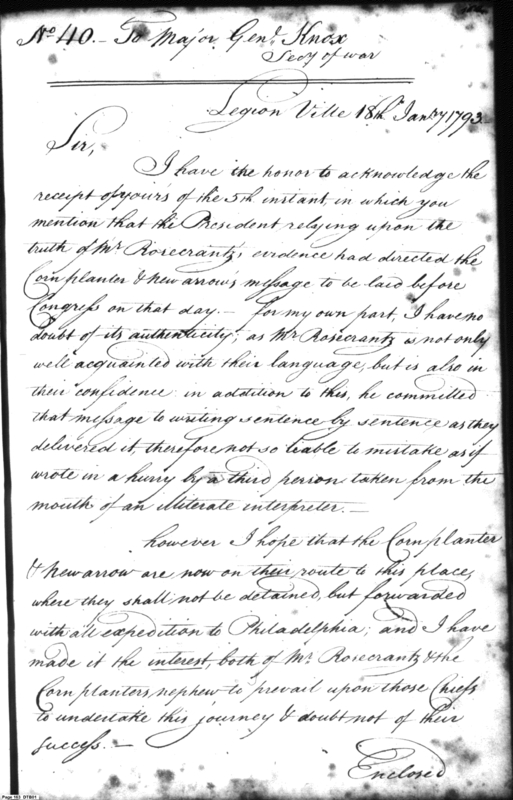 No. 40. — To Major Genl. Knox
Secy of war
Legion Ville 18th Janry 1793
Sir,
I have the honor to acknowledge the
receipt of yours of the 5th instant, in which you
mention that the President relying upon the
truth of Mr Rosecrantz's evidence had directed the
Cornplanter & New arrow's message to be laid before
Congress on that day. — for my own part, I have no
doubt of its authenticity; as Mr Rosecrantz is not only
well acquainted with their language, but is also in
their confidence in addition to this, he committed
that message to writing sentence by sentence as they
delivered it, therefore not so leable to mistake as if
wrote in a hurry by a third person taken from the
mouth of an illiterate interpreter. —
however I hope that the Cornplanter
& New arrow are now on their route to this place,
where they shall not be detained, but forwarded
with all expedition to Philadelphia; and I have
made it the interest, both of Mr. Rosecrantz & the
Cornplanters, nephew to prevail upon those Chiefs
to undertake this journey & doubt not of their
success. —
Enclosed
Page 163 DTB01